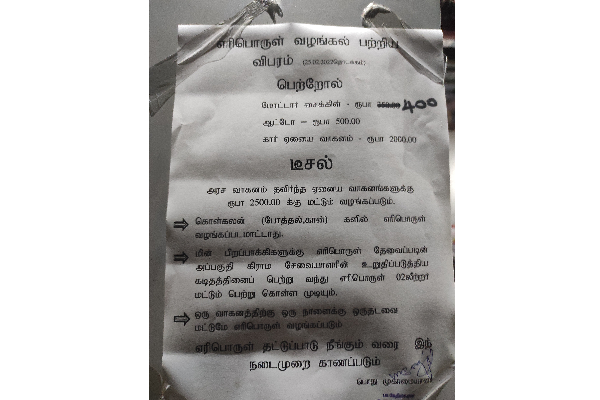 எரிபொருள் வழங்கல் பற்றிய
விபரம் ..(25.02.2022தொடக்கம்)
பெற்றோல்
மோட்டார் சைக்கிள் - ரூபா 350.00 400
ஆட்டோ – ரூபா 500.00
கார் ஏனைய வாகனம் - ரூபா 2000.00
டீசல்
அரச வாகனம் தவிர்ந்த ஏனைய வாகனங்களுக்கு
ரூபா 2500.00 க்கு மட்டும் வழங்கப்படும்.
⇒ கொள்கலன் (போத்தல்,கான்) களில் எரிபொருள்
வழங்கப்படமாட்டாது.
⇒ மின் பிறப்பாக்கிகளுக்கு எரிபொருள் தேவைப்படின்
அப்பகுதி கிராம சேவையாளரின் உறுதிப்படுத்திய
கடிதத்தினைப் பெற்று வந்து எரிபொருள் 02லீற்றர்
மட்டும் பெற்று கொள்ள முடியும்.
⇒ ஒரு வாகனத்திற்கு ஒரு நாளைக்கு ஒருதடவை
மட்டுமே எரிபொருள் வழங்கப்படும்
எரிபொருள் தட்டுப்பாடு நீங்கும் வரை இந்
நடைமுறை காணப்படும்
பொது முகாமையாளர்